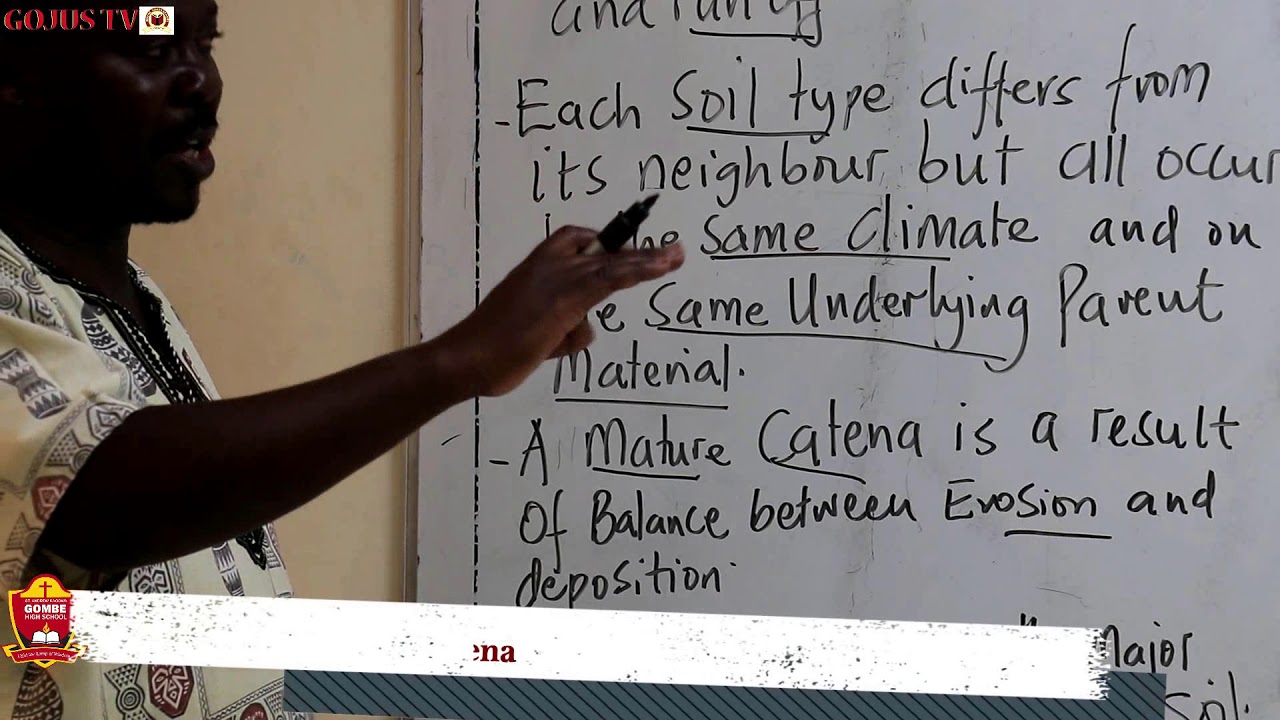 GOJUS TV
and run off
- Each Soil type differs from
its neighbour but all occur
Same Climate and on
Same Underlying Parent
Material.
- A Mature Catena is a result
Of Balance between Erosion and
deposition.
Major
Soil.
GOMBE
HIGH SCHOOL
ena